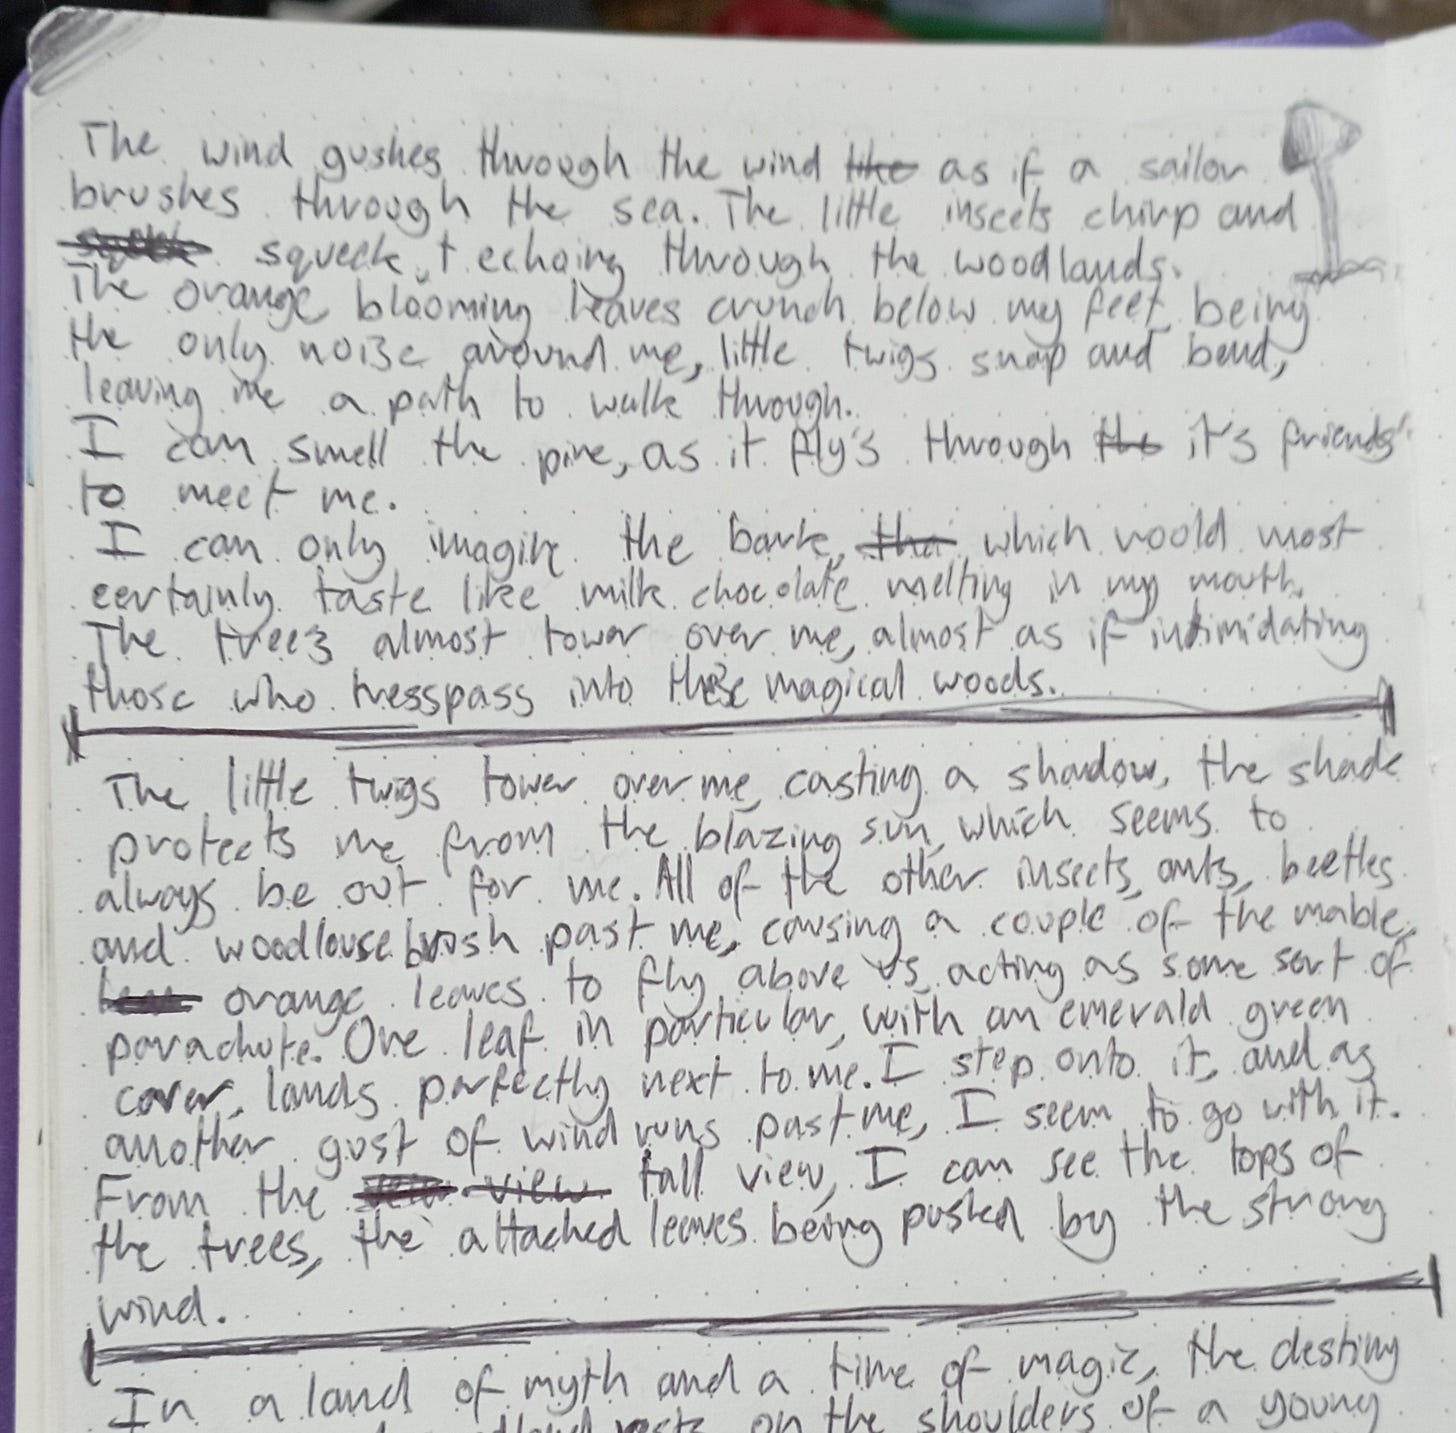 The wind gushes through the wind like as if a sailor
brushes through the sea. The little insects chirp and
squeek, echoing through the woodlands.
The orange blooming leaves crunch below my feet, being
the only noise around me, little twigs snap and bend,
leaving me a path to walk through.
I can smell the pine, as it fly's through the it's friends
to meet me.
I can only imagine the bark, tha which would most
certainly taste like milk chocolate melting in my mouth.
The trees almost tower over me, almost as if intimidating
those who tresspass into these magical woods.
The little twigs tower over me, casting a shadow, the shade
protects me from the blazing sun, which seems to
always be out for me. All of the other insects, ants, beetles
and woodlouse brush past me, causing a couple of the mable,
orange leaves to fly above us, acting as some sort of
parachute. One leaf in particular, with an emerald green
cover, lands perfectly next to me. I step onto it, and as
another gust of wind runs past me, I seem to go with it.
From the view tall view, I can see the tops of
the trees, the attached leaves being pushed by the strong
wind.
In a land of myth and a time of magic, the destiny
rests on the shoulders of a young